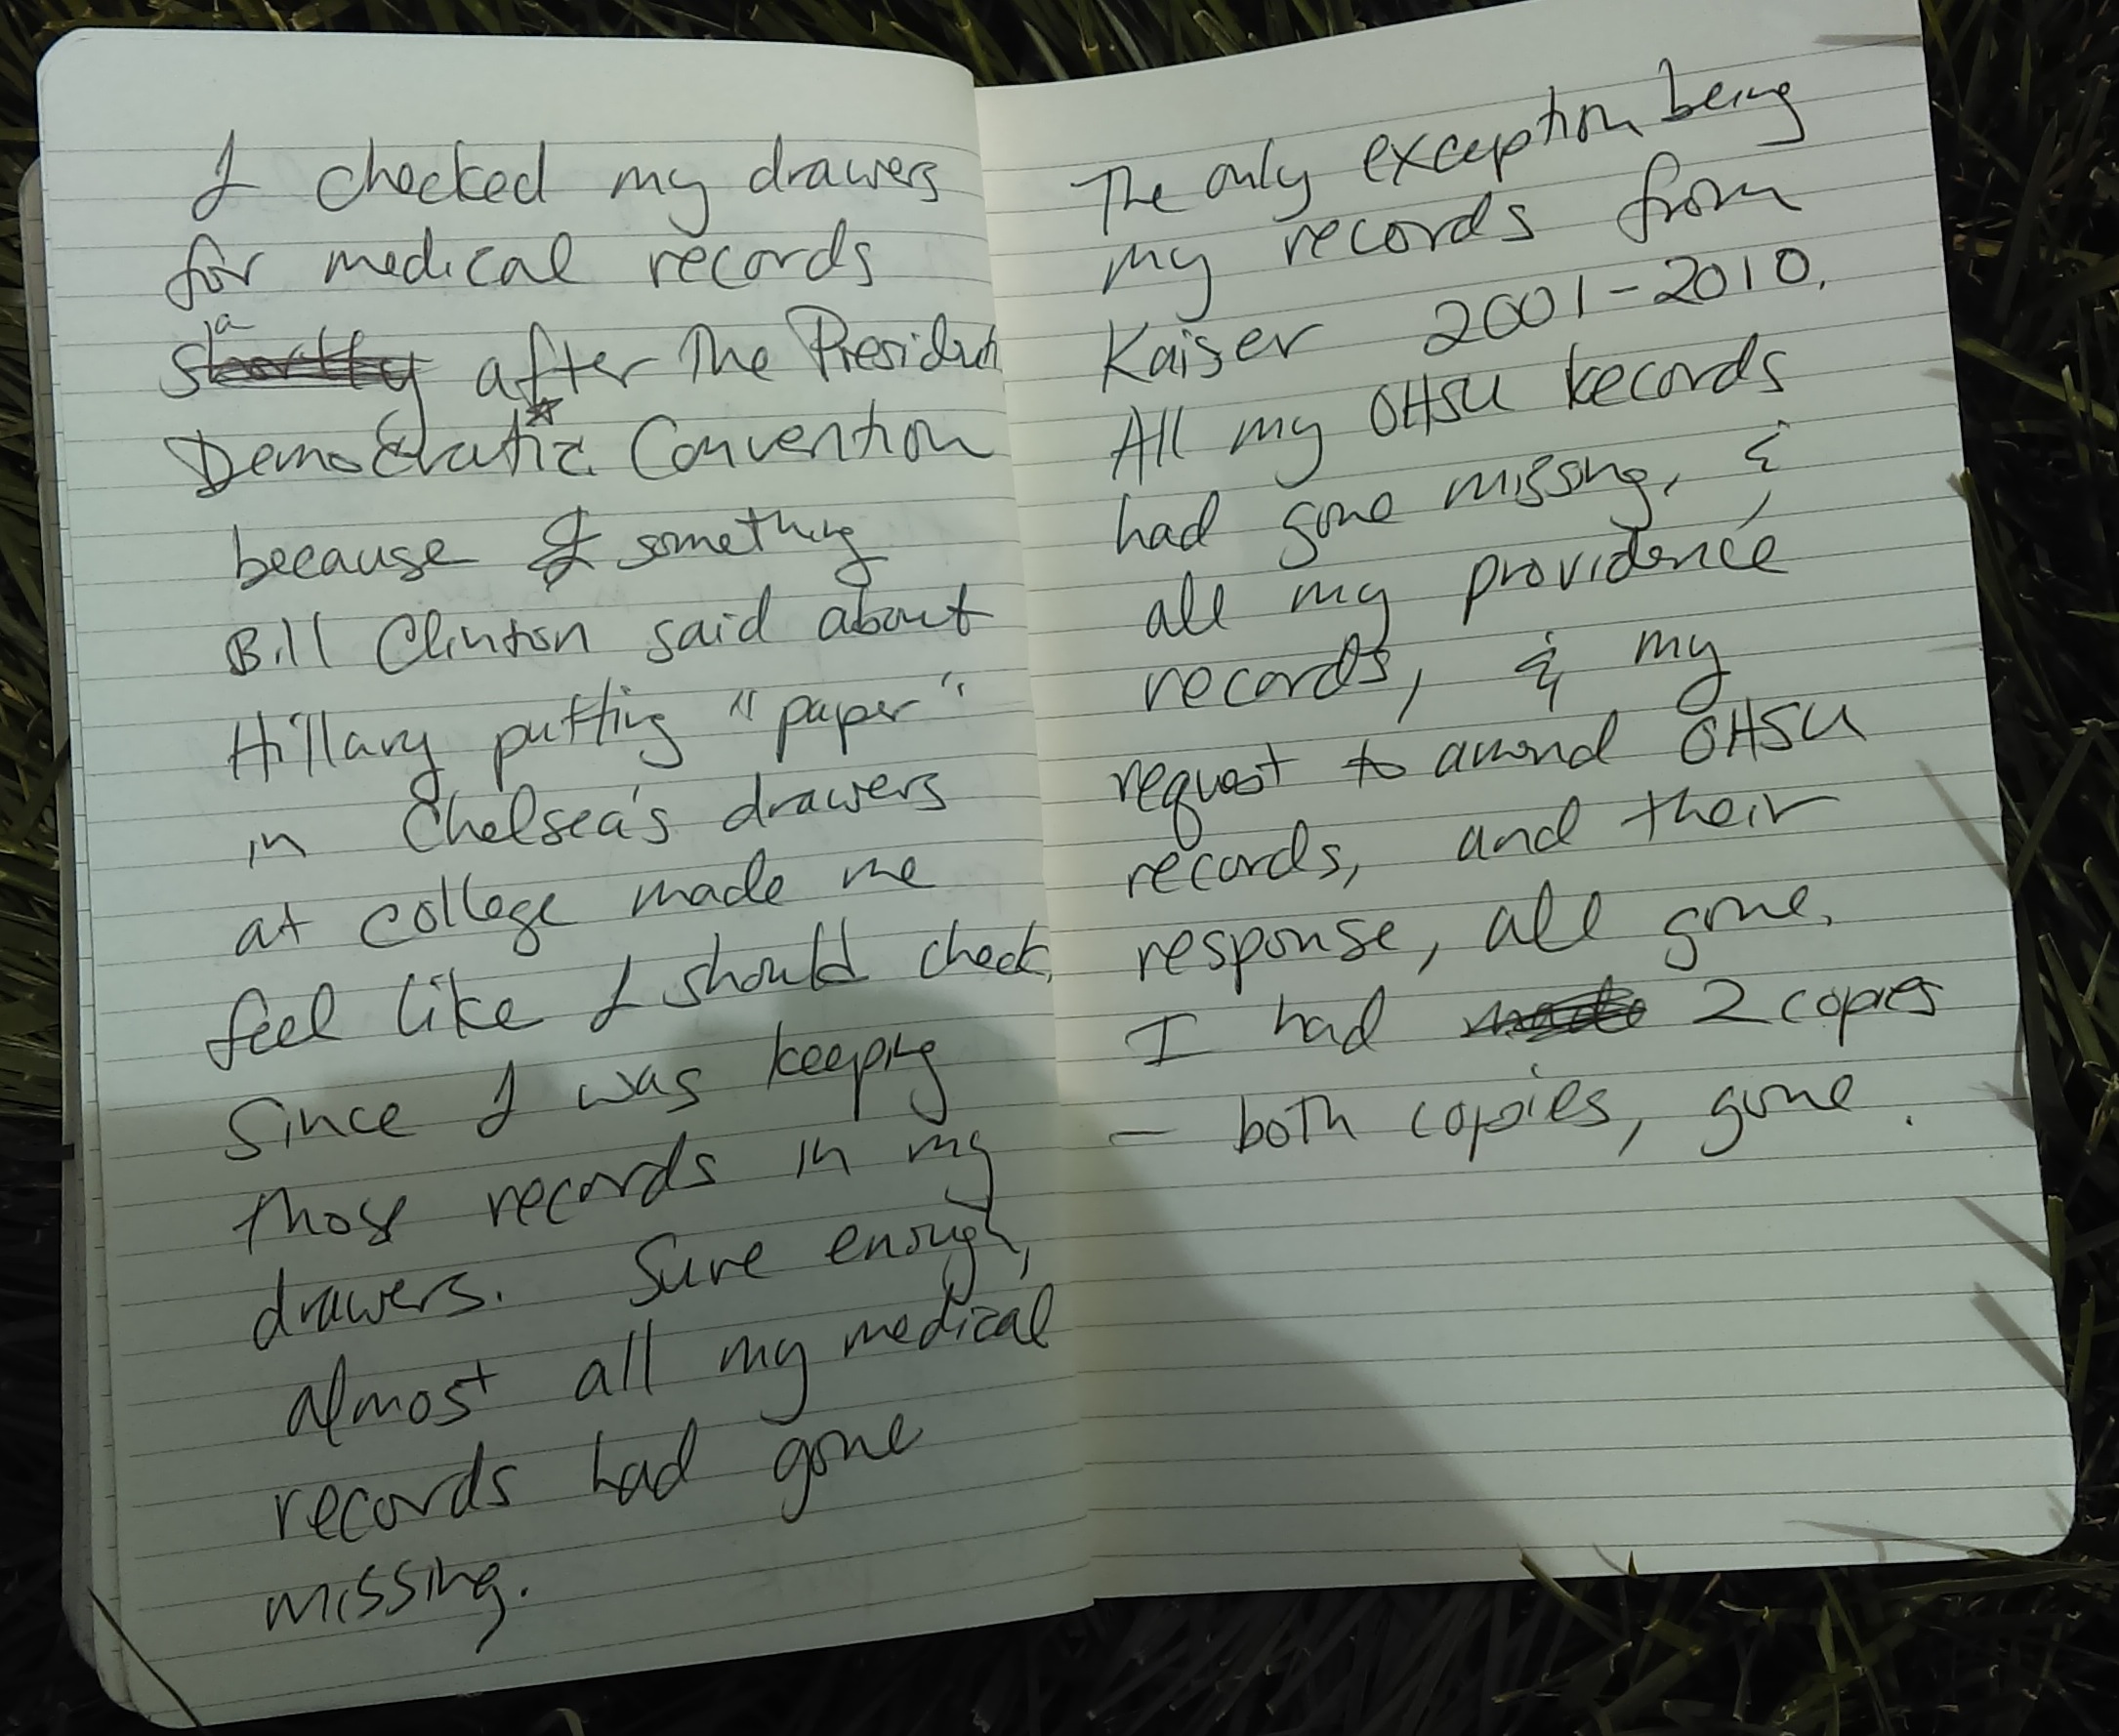 I checked my drawers
for medical records
shortly after The President
Democratic Convention
because something
Bill Clinton said about
Hillary putting "paper"
in Chelsea's drawers
at college made me
feel like I should check,
Since I was keeping
those records in my
drawers. Sure enough,
almost all my medical
records had gone
missing.
The only exception being
my records from
Kaiser 2001-2010.
All my OHSU records
had gone missing, &
all my providence
records, & my
request to amend OHSU
records, and their
response, all gone.
I had made 2 copies
— both copies, gone.